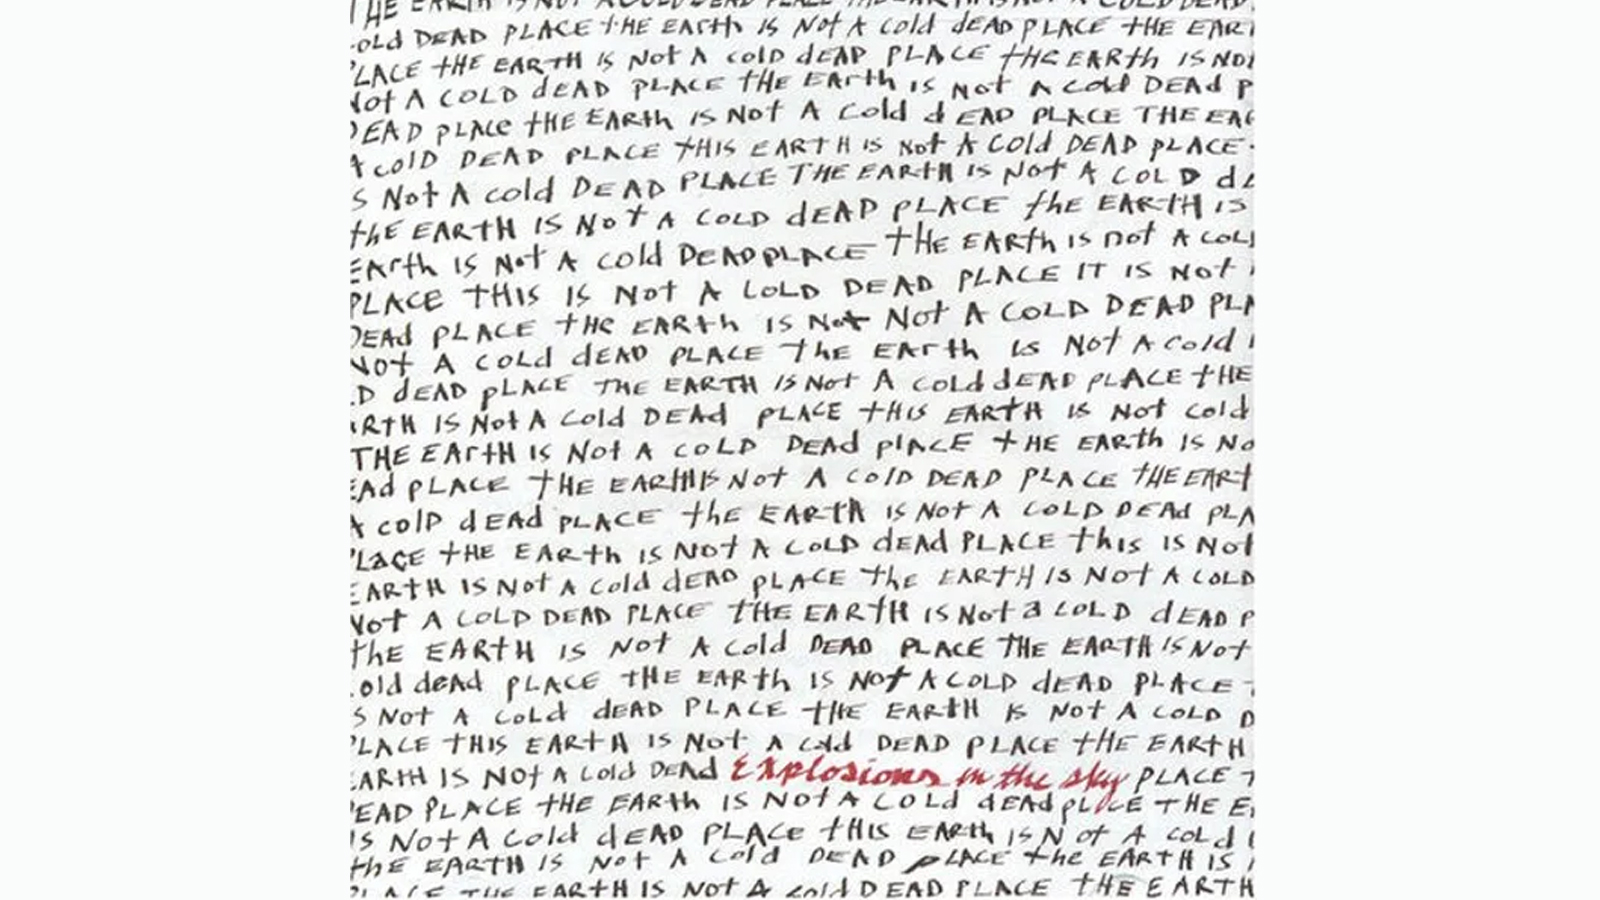 THE EARTH IS NOT A COLD DEAD PLACE THE EARTH IS NOT A COLD DEAD
old DEAD PLACE tHE EArth IS Not A cold dEAD PLACE tHE EAR
LACE tHE EARTH IS Not A cold dEAD PLACE tHE EARth IS NOt
Not A COLD dEAD PLACE tHE EArth is Not A cold DEAD P
DEAD pLACe tHE EARth IS Not A Cold dEAD PLACE THE EAR
A colD DEAD PLACE tHIS EARTH IS Not A Cold DEAD pLACE
S Not A cold DEAD PLACE THE EARtH IS Not A COLD dE
thE EARTH IS Not A COLD dEAD PLACE the EARTH IS
EArth IS Not A cold DEAD pLACE tHE EARth is not A COL
PLACE THIS IS Not A COLD DEAD PLACE IT IS Not
DEAd PLACE tHE EARth IS Not Not A COLD DEAD PLA
Not A cold dEAD PLACE the EArth Is Not A cold
D dEAD pLACE THE EARTH IS Not A cold dEAD pLACE tHE
RTH IS Not A Cold DEAd PLACE tHIS EARTH IS Not cold
THE EArtH IS Not A COLD DEAd plACE tHE EARth IS No
EAd PLACE tHE EARtH IS Not A colD DEAD PLACE tHE EARt
A colD dEAd pLACE the EARth IS Not A COLD DEAd PLA
LACE tHE EARth IS NOt A COLD dEAd PLACE this IS Not
EARTH IS Not A Cold dEAD pLACE the EARTH IS Not A COLD
Not A COLD DEAD PLACE tHE EARtH IS Not a COLD dEAD P
thE EARtH IS Not A Cold DEAD PLACE THE EARtH IS Not
old dEAd PLACE tHE EARth IS Not A COLD dEAD PLACE
S Not A Cold dEAD PLACE tHE EARtH IS Not A COLD D
LACE tHIS EARtH IS Not A cold DEAD PLACE tHE EARTH
EARtH IS Not A Cold DEAD Explosions in the sky PLACE
DEAD PLACE tHE EARth IS Not A COLd dEAd pLACE tHE E
IS Not A Cold dEAD PLACE tHIS EARth IS Not A COLd
thE EARTH IS Not A Cold DEAD pLACE the EARTH IS
PLACE tHE EARtH IS Not A cold DEAD PLACE tHE EARTH